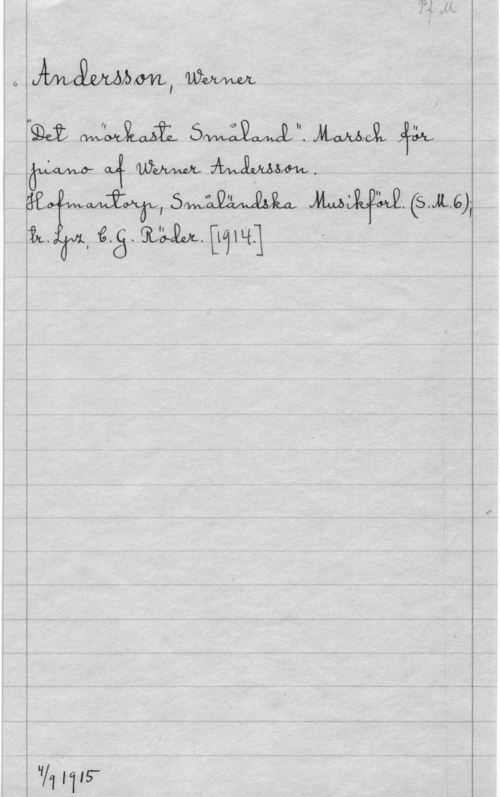 Pf M
Andersson, Werner
"Det mörkaste Småland". Marsch för
piano af Werner Andersson.
Hofmantorp, Småländska Musikförl. (S.M.6),
tr. Lpz, C.G. Röder. [1914.]
4/9 1915